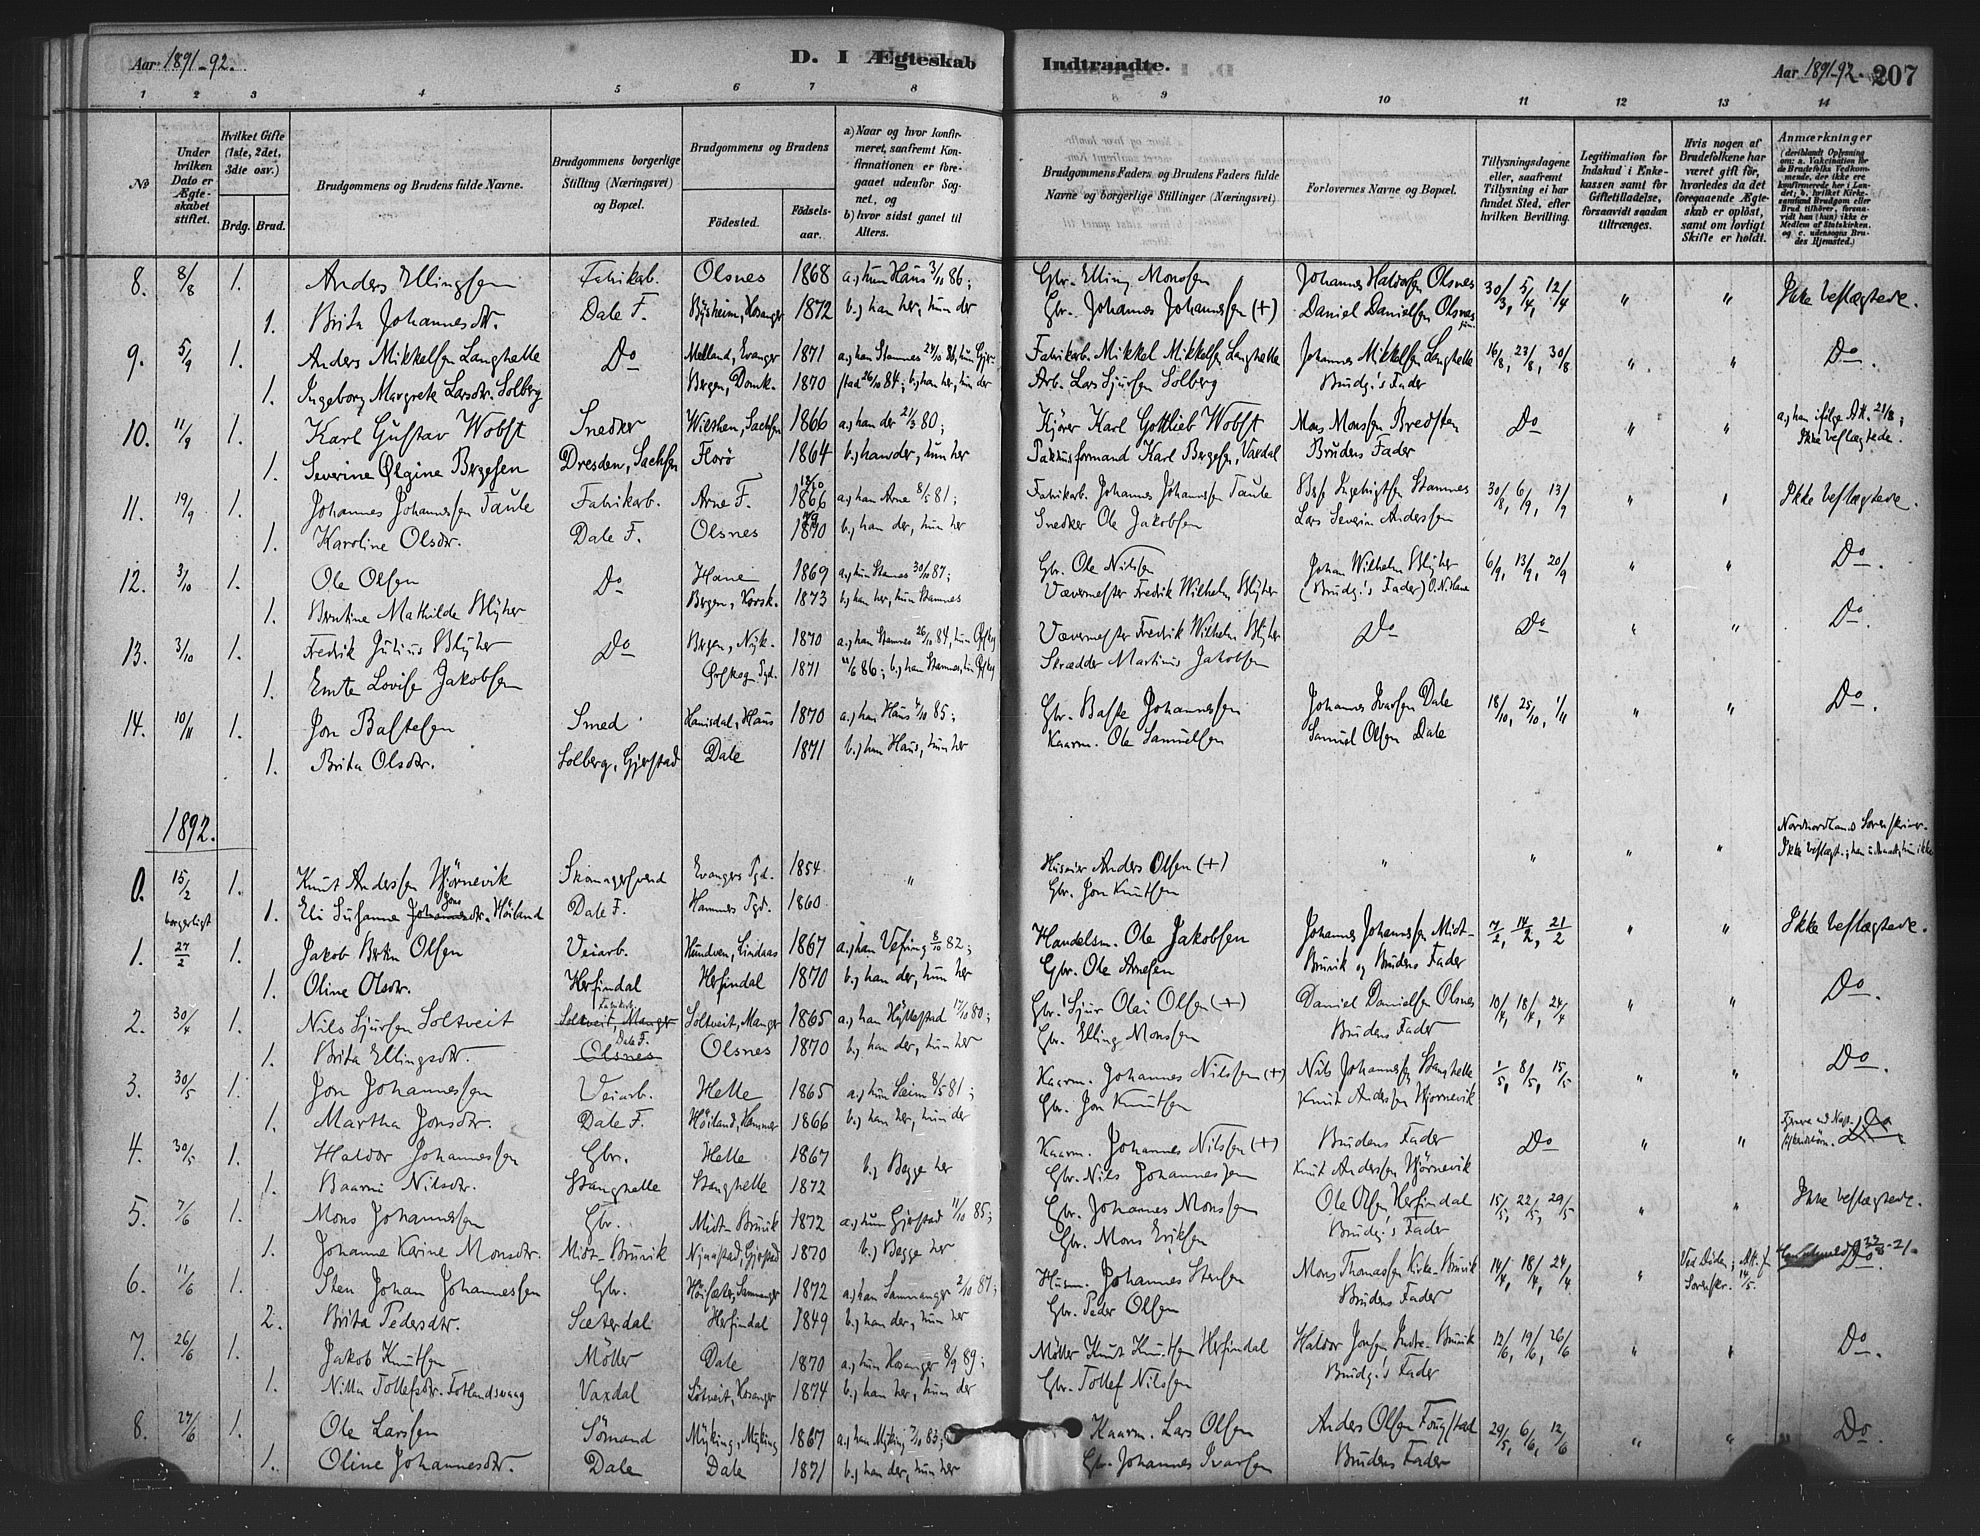 Aar 1891-92.
D. I Ægteskab Indtraadte.
Aar 1891-92. 207
1 2 3 4 5 6 7 8 9 10 11 12 13 14
№
Under hvilken Dato er Ægteskabet stiftet.
Hvilket Gifte (1ste, 2det, 3die osv.)
Brdg. Brud.
Brudgommens og Brudens fulde Navne.
Brudgommens borgerlige Stilling (Næringsvei) og Bopæl.
Brudgommens og Brudens
Fødested.
Fødselsaar.
a) Naar og hvor konfirmeret, saafremt Konfirmationen er foregaaet udenfor Sognet, og
b) hvor sidst gaaet til Alters.
Brudgommens Faders og Brudens Faders fulde Navne og borgerlige Stillinger (Næringsvei)
Forlovernes Navne og Bopæl.
Tillysningsdagene eller, saafremt Tillysning ei har fundet Sted, efter hvilken Bevilling.
Legitimation for Indskud i Enkekassen samt for Giftetilladelse, forsaavidt saadan tiltrænges.
Hvis nogen af Brudefolkene har været gift før, hvorledes da det foregaaende Ægteskab er opløst, samt om lovligt Skifte er holdt.
Anmærkninger
8. 8/8 1. Anders Ellingsen Fabrikarb. Olsnes 1868 a., hun Haus 3/10 86; Gbr. Elling Monsen Johannes Haldorsen Olsnes 30/3, 5/4, 12/4 " " Ikke beslægtede.
1. Brita Johannesdtr. Dale F. Bysheim, Hosanger 1872 b., han her, hun der Gbr. Johannes Johannessen (+) Daniel Danielsen Olsnes
9. 5/9 1. Anders Mikkelsen Langhelle Do Melland, Evanger 1871 a., han Stamnes 24/10 86, hun Gjer- Fabrikarb. Mikkel Mikkelsen Langhelle Johannes Mikkelsen Langhelle 16/8, 23/8, 30/8 " " Do.
1. Ingeborg Margrete Larsdtr. Solberg Bergen, Domk. 1870 stad 26/10 84; b., han her, hun der Arb. Lars Sjursen Solberg Brudg.'s Fader
10. 11/9 1. Karl Gustav Wobst Snedker Wilthen, Sachsen 1866 a., han der 21/3 80; Kjører Karl Gottlieb Wobst Mons Monsen Bredsten Do " " a., han ifølge Att. 21/8; Ikke beslægtede.
1. Severine Olgine Bergesen Dresden, Sachsen Florö 1864 b., han der, hun her Pakhusformand Karl Bergesen, Vaxdal Brudens Fader
11. 19/9 1. Johannes Johannessen Taule Fabrikarb. Arne F. 1866 a., han Arne 8/5 81; Fabrikarb. Johannes Johannessen Taule Ingebrigtsen Stamnes 30/8, 6/9, 13/9 " " Ikke beslægtede.
1. Karoline Olsdtr. Dale F. Olsnes 1870 b., han der, hun her Snedker Ole Jakobsen Lars Severin Andersen
12. 3/10 1. Ole Olsen Do Hane 1869 a., hun Stamnes 30/10 87; Gbr. Ole Nilsen Johan Wilhelm Blyher 6/9, 13/9, 20/9 " " Do.
1. Berntine Mathilde Blyher Bergen, Korsk. 1873 b., han her, hun Stamnes Vævermester Fredrik Wilhelm Blyher (Brudg.'s Fader) O. N. Hane
13. 3/10 1. Fredrik Julius Blyher Do Bergen, Nyk. 1870 a., han Stamnes 26/10 84, hun Vævermester Fredrik Wilhelm Blyher Do Do " " Do.
1. Emte Lovise Jakobsen Pgd. 1871 86; b., han Stamnes, hun Skrædder Martinus Jakobsen
14. 10/11 1. Jon Bastesen Smed Hanisdal, Haus 1870 a., han Haus 4/10 85; Gbr. Baste Johannessen Johannes Ivarsen Dale 18/10, 25/10, 1/11 " " Do.
1. Brita Olsdtr. Solberg, Gjerstad Dale 1871 b., han Haus, hun her Kaarm. Ole Samuelsen Samuel Olsen Dale
1892.
0. 15/2 1. Knut Andersen Hjörnevik Skomagersvend Evangers Pgd. 1854 " Husmør Anders Olsen (+) " " " " Nordhordlands Sorenskriver.
borgerligt 1. Eli Susanne Jonsdtr. Höiland Dale F. Hammers Pgd. 1860 Gbr. Jon Knutsen
1. 27/2 1. Jakob Bertin Olsen Veiarb. Hundven, Lindaas 1867 a., han Vefring 8/10 82; Handelsm. Ole Jakobsen Johannes Johannessen Midt- 7/2, 14/2, 21/2 " " Ikke beslægtede.
1. Oline Olsdtr. Herfindal Herfindal 1870 b., han der, hun her Gbr. Ole Arnesen Bruvik og Brudens Fader
2. 30/4 1. Nils Sjursen Soltveit Fabrikarb. Soltveit, Manger Soltveit, Manger 1865 a., han Hyllestad 17/10 80; Gbr. Sjur Olai Olsen (+) Daniel Danielsen Olsnes 10/4, 18/4, 24/4 " " Do.
1. Brita Ellingsdtr. Dale F. Olsnes Olsnes 1870 b., han der, hun her Gbr. Elling Monsen Brudens Fader
3. 30/5 1. Jon Johannessen Veiarb. Helle 1865 a., hun Seim 8/5 81; Kaarm. Johannes Nilssen (+) Nils Johannessen Stanghelle 1/5, 8/5, 15/5 " " Do.
1. Martha Jonsdtr. Dale F. Höiland, Hammer 1866 b., han her, hun der Gbr. Jon Knutsen Knut Andersen Hjørnevik
4. 30/5 1. Haldor Johannessen Gbr. Helle 1867 b., Begge her Kaarm. Johannes Nilssen (+) Brudens Fader Do " " Do
1. Baarni Nilsdtr. Stanghelle Stanghelle 1872 Gbr. Nils Johannessen Knut Andersen Hjörnevik
5. 7/6 1. Mons Johannessen Gbr. Midt-Bruvik 1872 a., hun Gjerstad 11/10 85; Gbr. Johannes Monsen Ole Olsen Herfindal 15/5, 22/5, 29/5 " " Ikke beslægtede.
1. Johanne Karine Monsdtr. Midt-Bruvik Njaastad, Gjerstad 1870 b., Begge her Gbr. Mons Eriksen Brudg.'s Fader
6. 11/6 1. Sten Johan Johannessen Gbr. Höisæter, Samnanger 1872 a., han Samnanger 2/10 87; Husm. Johannes Stensen Mons Thomassen Kirke-Bruvik 14/4, 18/4, 24/4 " Ved Døden; Att. f. Sorenskr. 14/5. Do.
2. Brita Pedersdtr. Sæterdal Herfindal 1849 b., han der, hun her Gbr. Peder Olsen Brudens Fader
7. 26/6 1. Jakob Knutsen Möller Dale 1870 a., hun Hosanger 8/9 89; Möller Knut Knutsen Herfindal Haldor Jonsen Indre-Bruvik 12/6, 19/6, 26/6 " " Do.
1. Nilla Tollefsdtr. Fotlandsvaag Vaxdal Sötveit, Hosanger 1874 b., han her, hun der Gbr. Tollef Nilsen Brudg.'s Fader
8. 27/6 1. Ole Larsen Sömand Myking, Myking 1867 a., han Myking 7/10 83; Kaarm. Lars Olsen Anders Olsen Fougstad 29/5, 6/6, 12/6 " " Do.
1. Oline Johannesdtr. Dale Dale 1871 b., han der, hun her Gbr. Johannes Ivarsen Brudens Fader